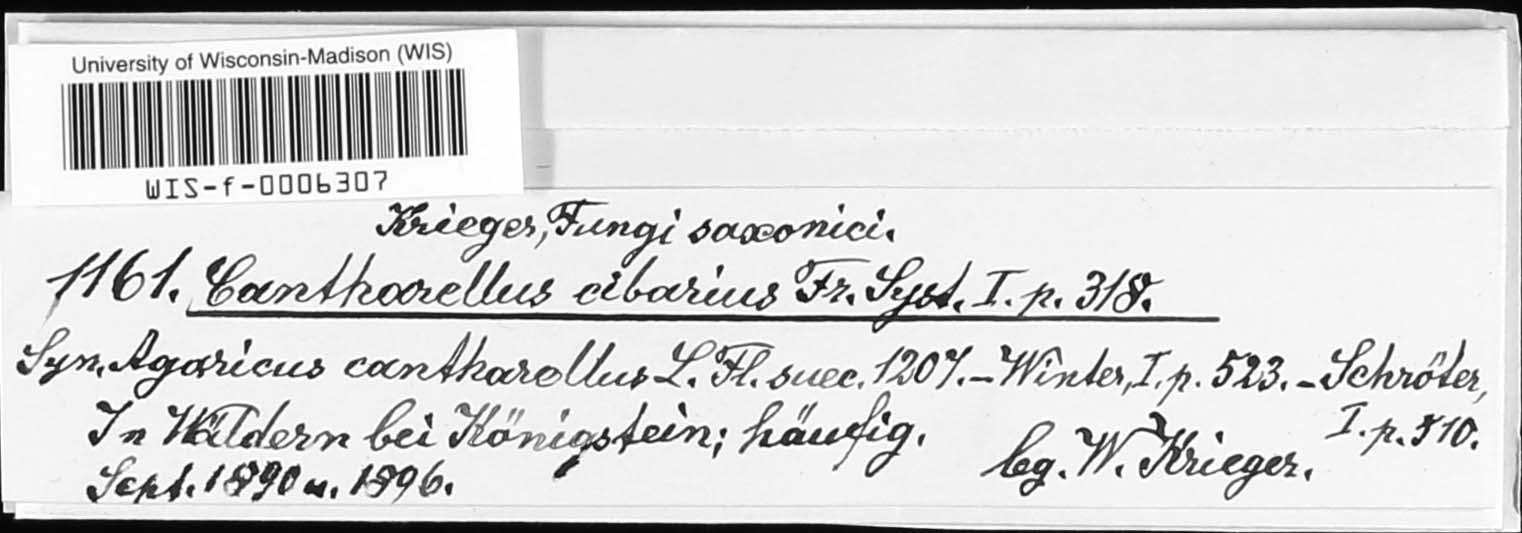 University of Wisconsin-Madison (WIS)
WIS-f-0006307
Krieger, Fungi saxonici.
1161. Cantharellus cibarius Fr. Syst. I. p. 318.
Syn. Agaricus cantharellus L. Fl. suec. 1207. – Winter, I. p. 523. – Schröter, I. p. 510.
In Wäldern bei Königstein; häufig.
Sept. 1890 u. 1896.
leg. W. Krieger.